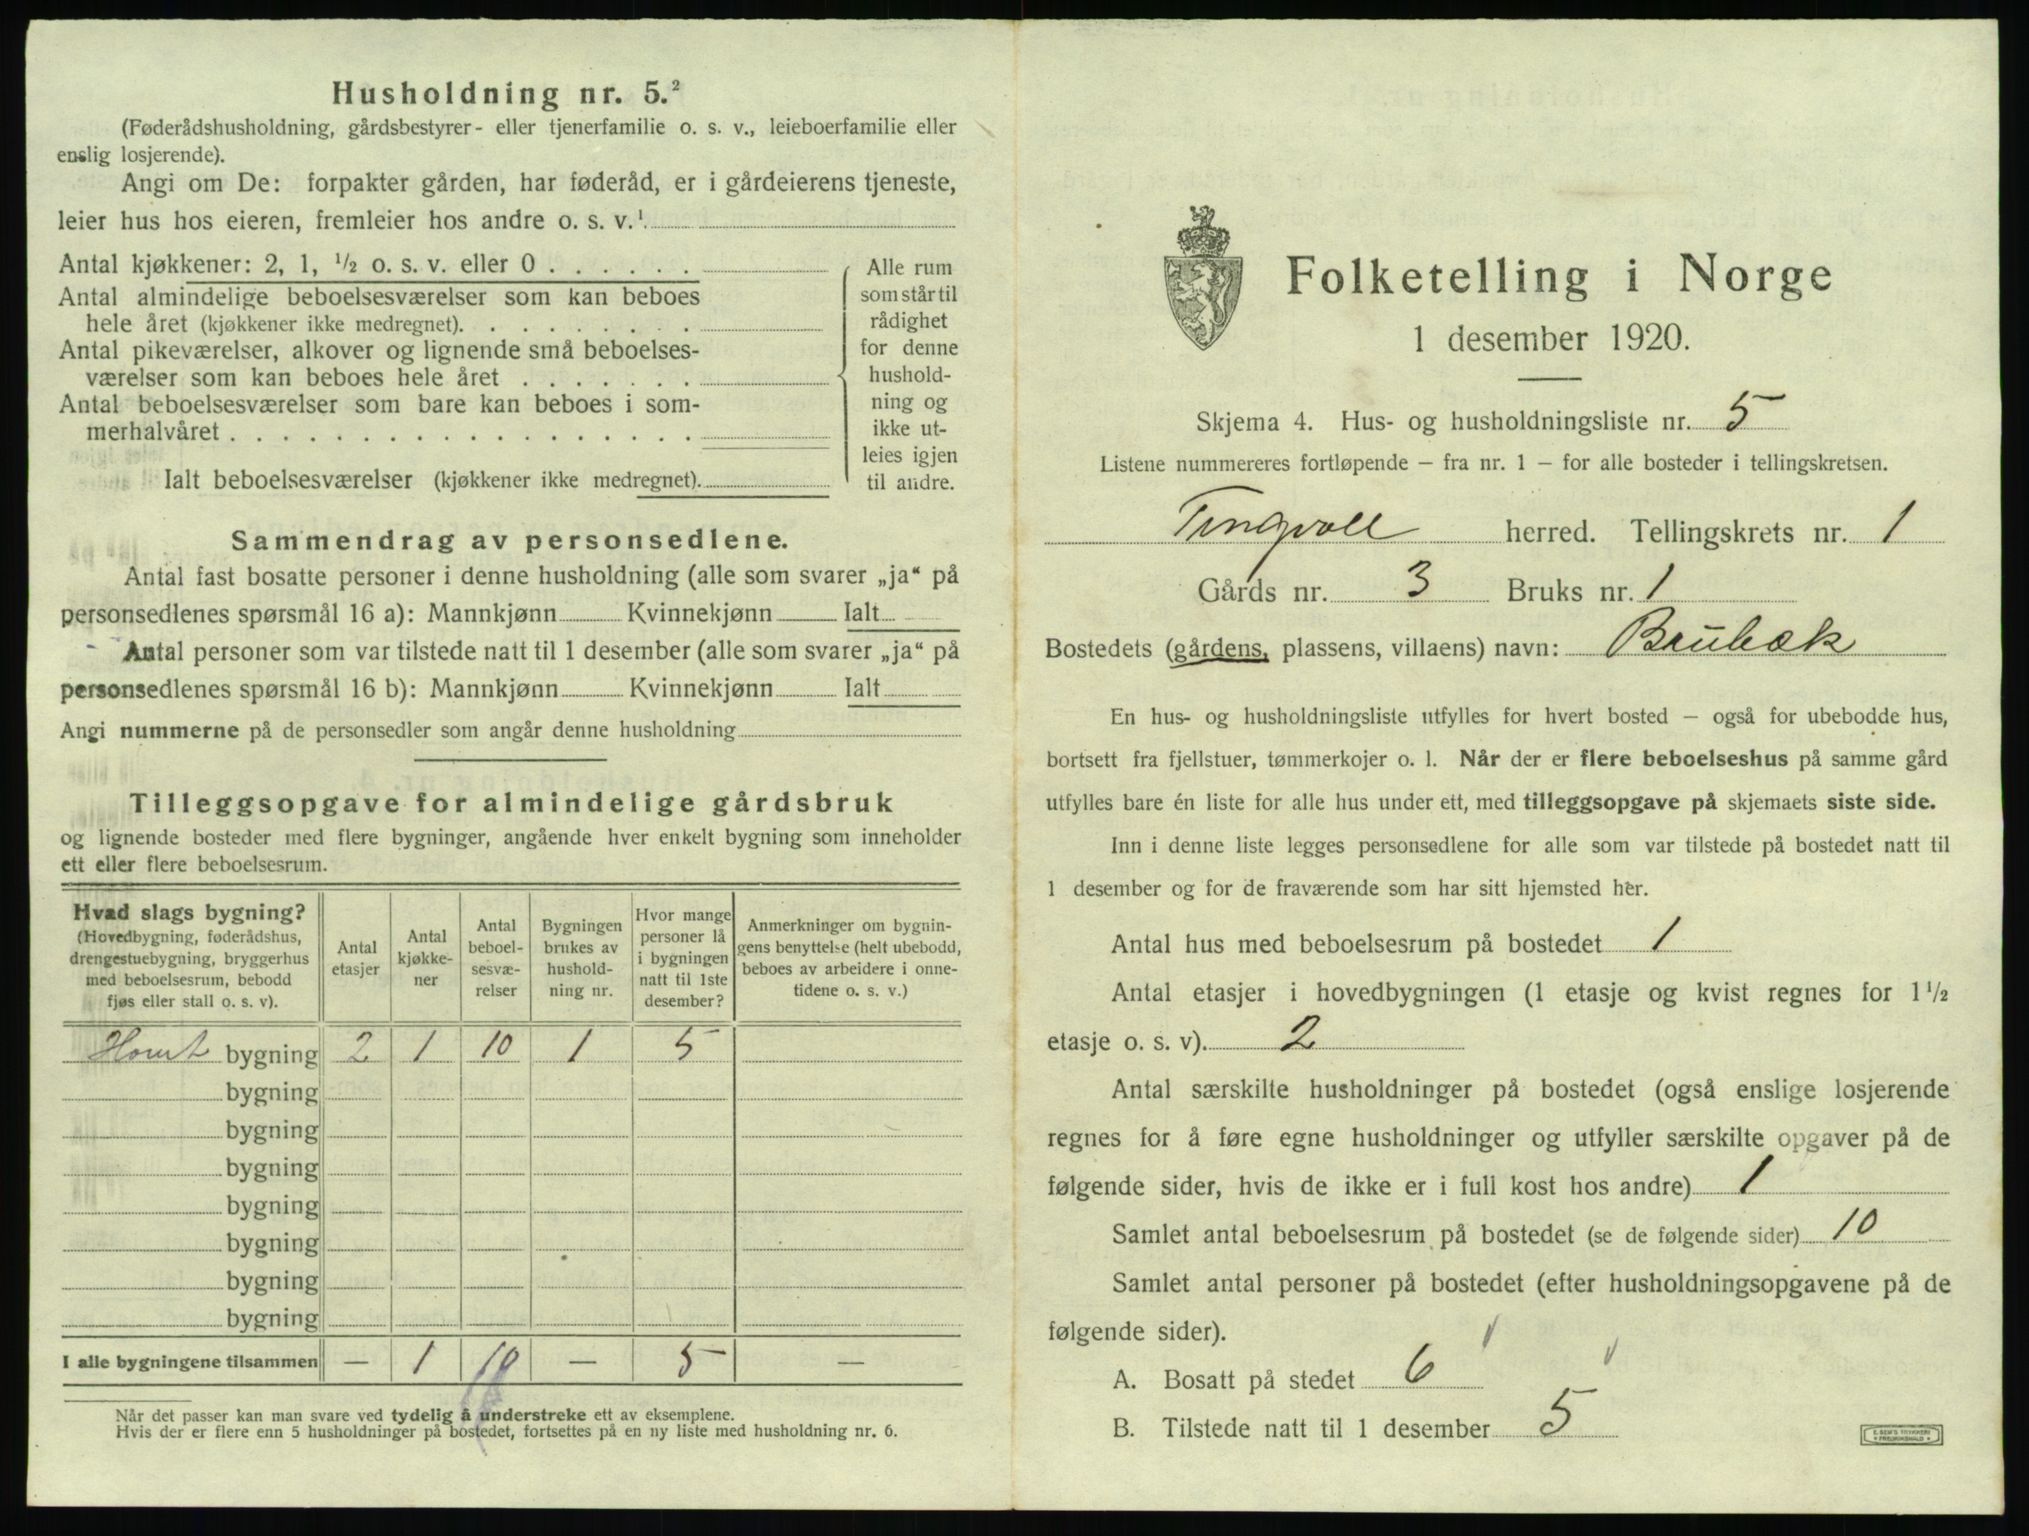 Husholdning nr. 5.²
(Føderådshusholdning, gårdsbestyrer- eller tjenerfamilie o. s. v., leieboerfamilie eller
enslig losjerende).
Angi om De: forpakter gården, har føderåd, er i gårdeierens tjeneste,
leier hus hos eieren, fremleier hos andre o. s. v.¹
Antal kjøkkener: 2, 1, ½ o. s. v. eller 0 . . . . . .
Antal almindelige beboelsesværelser som kan beboes
hele året (kjøkkener ikke medregnet). . . . . . . . .
Antal pikeværelser, alkover og lignende små beboelses-
værelser som kan beboes hele året . . . . . . .
Antal beboelsesværelser som bare kan beboes i som-
merhalvåret . . . . . . . . . . . . . . . . . .
Ialt beboelsesværelser (kjøkkener ikke medregnet).
Alle rum
som står til
rådighet
for denne
hushold-
ning og
ikke ut-
leies igjen
til andre.
Sammendrag av personsedlene.
Antal fast bosatte personer i denne husholdning (alle som svarer „ja“ på
personsedlenes spørsmål 16 a): Mannkjønn Kvinnekjønn Ialt
Antal personer som var tilstede natt til 1 desember (alle som svarer „ja“ på
personsedlenes spørsmål 16 b): Mannkjønn Kvinnekjønn Ialt
Angi nummerne på de personsedler som angår denne husholdning
Tilleggsopgave for almindelige gårdsbruk
og lignende bosteder med flere bygninger, angående hver enkelt bygning som inneholder
ett eller flere beboelsesrum.
Hvad slags bygning?
(Hovedbygning, føderådshus,
drengestuebygning, bryggerhus
med beboelsesrum, bebodd
fjøs eller stall o. s. v).
Antal
etasjer
Antal
kjøkke-
ner
Antal
beboel-
sesvæ-
relser
Bygningen
brukes av
hushold-
ning nr.
Hvor mange
personer lå
i bygningen
natt til 1ste
desember?
Anmerkninger om bygnin-
gens benyttelse (helt ubebodd,
beboes av arbeidere i onne-
tidene o. s. v.)
bygning 2 1 10 1 5
bygning
bygning
bygning
bygning
bygning
bygning
bygning
I alle bygningene tilsammen — 1 10 — 5 —
Når det passer kan man svare ved tydelig å understreke ett av eksemplene.
Hvis der er flere enn 5 husholdninger på bostedet, fortsettes på en ny liste med husholdning nr. 6.
Folketelling i Norge
1 desember 1920.
Skjema 4. Hus- og husholdningsliste nr. 5
Listene nummereres fortløpende – fra nr. 1 – for alle bosteder i tellingskretsen.
Tingvoll herred. Tellingskrets nr. 1
Gårds nr. 3 Bruks nr. 1
Bostedets (gårdens, plassens, villaens) navn: Brubæk
En hus- og husholdningsliste utfylles for hvert bosted – også for ubebodde hus,
bortsett fra fjellstuer, tømmerkojer o. l. Når der er flere beboelseshus på samme gård
utfylles bare én liste for alle hus under ett, med tilleggsopgave på skjemaets siste side.
Inn i denne liste legges personsedlene for alle som var tilstede på bostedet natt til
1 desember og for de fraværende som har sitt hjemsted her.
Antal hus med beboelsesrum på bostedet 1
Antal etasjer i hovedbygningen (1 etasje og kvist regnes for 1½
etasje o. s. v). 2
Antal særskilte husholdninger på bostedet (også enslige losjerende
regnes for å føre egne husholdninger og utfyller særskilte opgaver på de
følgende sider, hvis de ikke er i full kost hos andre) 1
Samlet antal beboelsesrum på bostedet (se de følgende sider) 10
Samlet antal personer på bostedet (efter husholdningsopgavene på de
følgende sider).
A. Bosatt på stedet 6
B. Tilstede natt til 1 desember 5
E. SEM'S TRYKKERI
FREDRIKSHALD